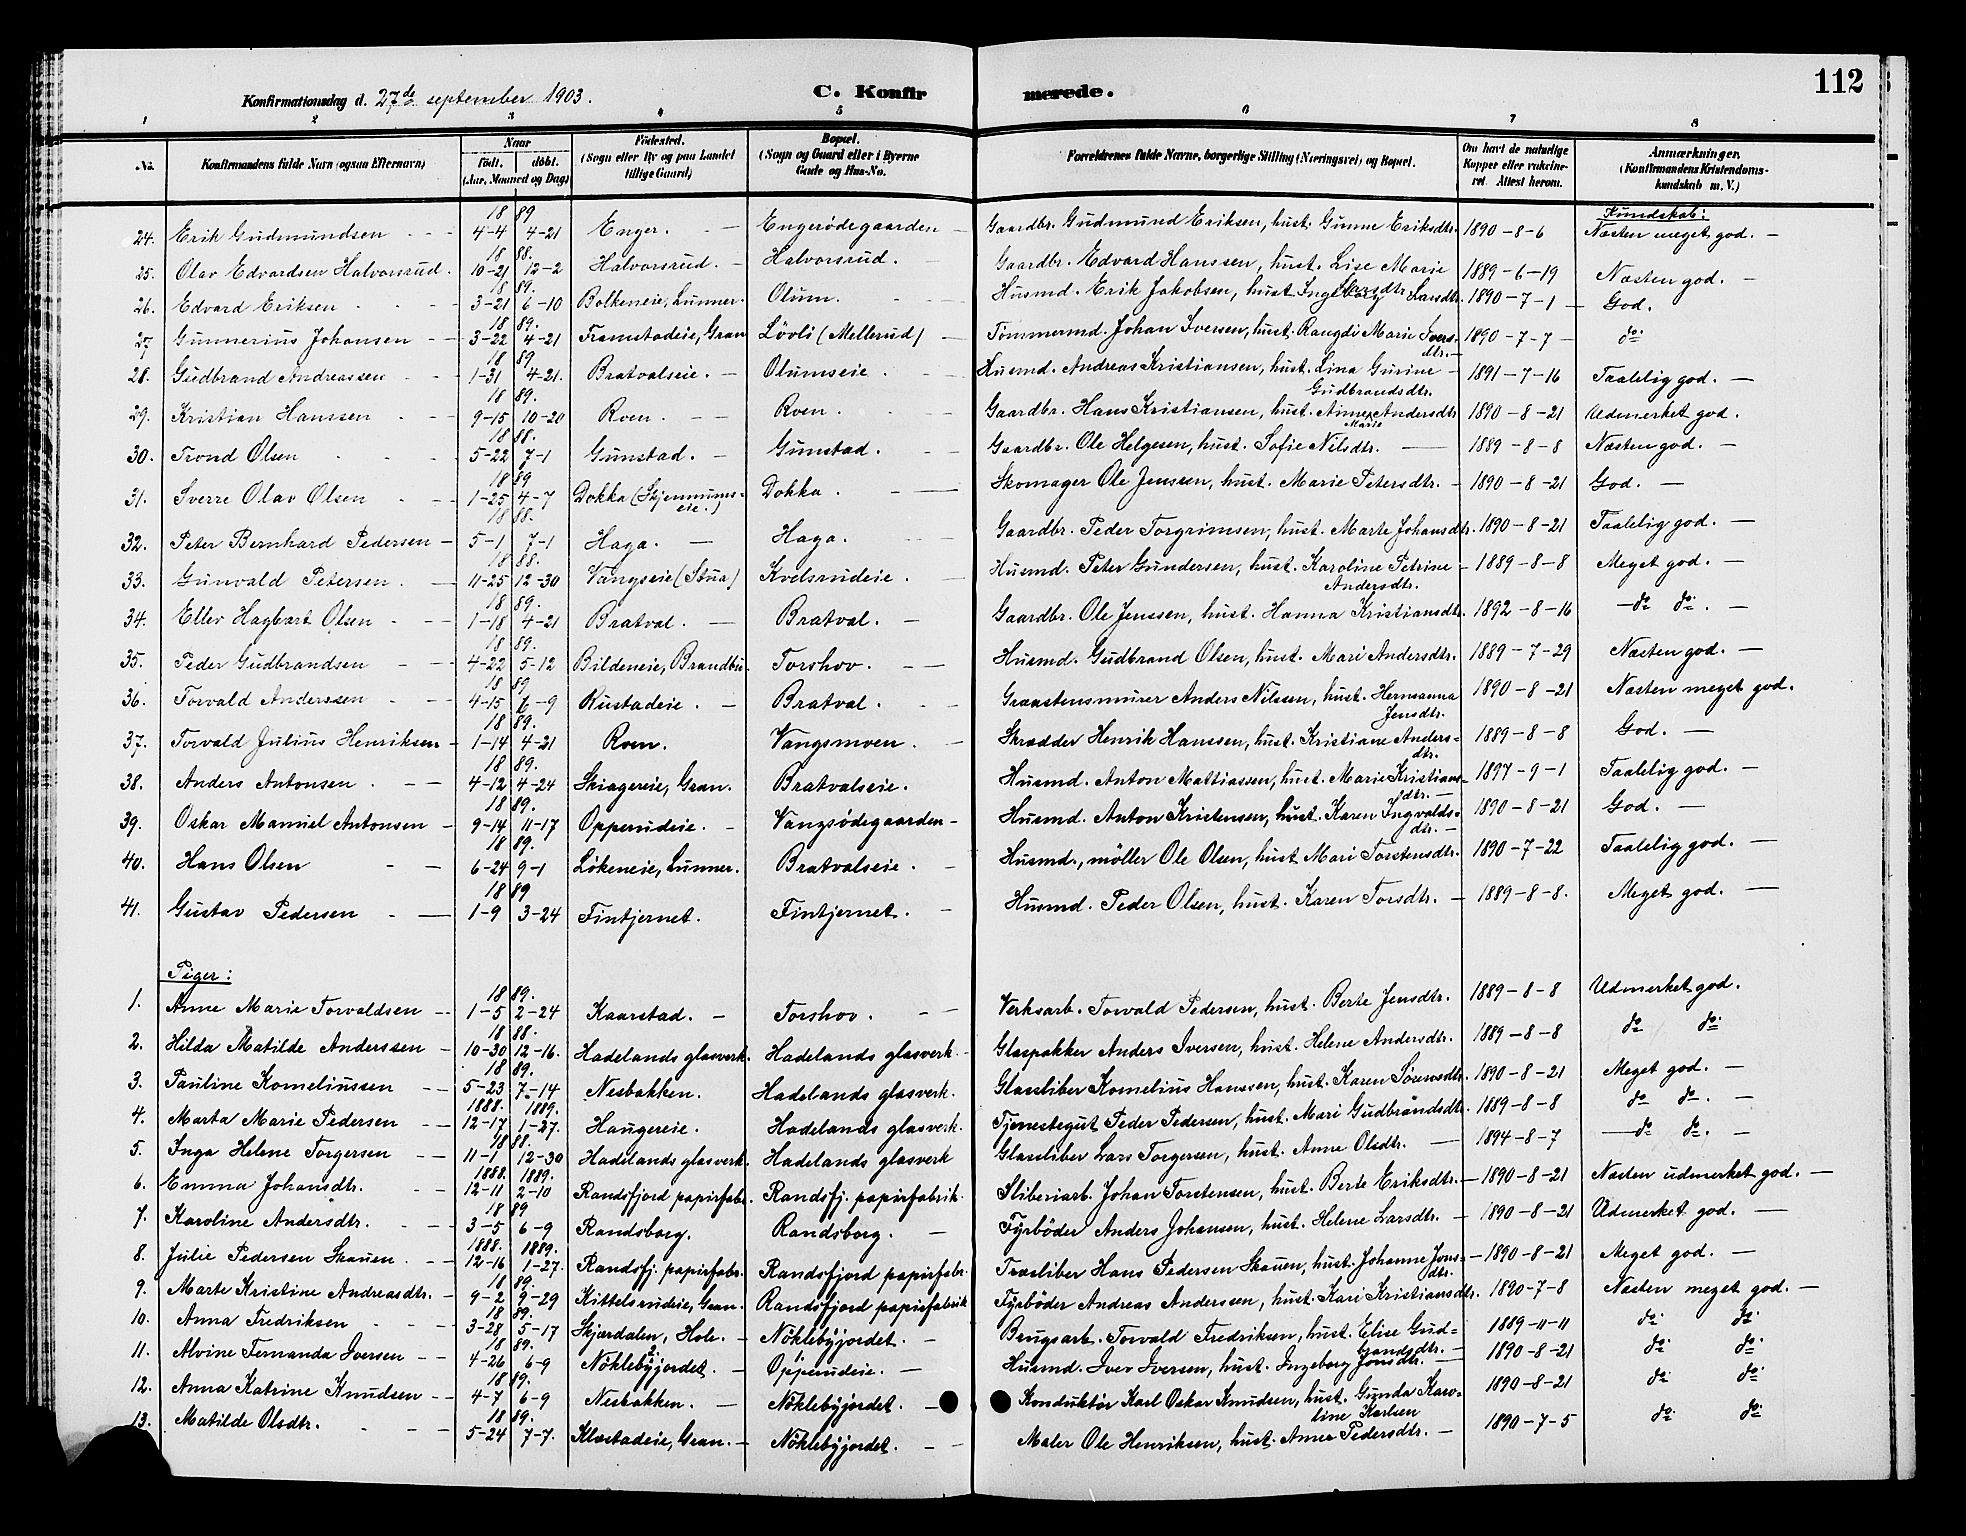 112
Konfirmationsdag d. 27de september 1903. C. Konfirmerede.
1 2 3 4 5 6 7 8
No. Konfirmandens fulde Navn (ogsaa Efternavn) Naar født. døbt. (Aar, Maaned og Dag) Fødested. (Sogn eller By og paa Landet tillige Gaard) Bopæl. (Sogn og Gaard eller i Byerne Gade og Hus-No. Forældrenes fulde Navne, borgerlige Stilling (Næringsvei) og Bopæl. Om havt de naturlige Kopper eller vakcineret. Attest herom. Anmærkninger. (Konfirmandens Kristendomskundskab m. V.)
Kundskab:
24. Erik Gudmundsen 1889 4-4 4-21 Enger. Engerødegaarden Gaardbr. Gudmund Eriksen, hust. Gunne Eriksdtr. 1890-8-6 Næsten meget god.
25. Olav Edvardsen Halvorsrud. 1888. 10-21 12-2 Halvorsrud. Halvorsrud. Gaardbr. Edvard Hanssen, hust. Lise Marie Larsdtr. 1889-6-19 Næsten god.
26. Edvard Eriksen 1889. 3-21 6-10 Bolkeneie, Lunner. Olum. Husmd. Erik Jakobsen, hust. Ingeborg Larsdtr. 1890-7-1 God.
27 Gunnerius Johansen 1889. 3-22 4-21 Framstadeie, Gran Løvli (Mellerud) Tømmermd. Johan Iversen, hust. Rangdi Marie Iversdtr. 1890-7-7 do
28. Gudbrand Andreassen 1889 1-31 4-21. Bratvalseie. Olumseie. Husmd. Andreas Kristiansen, hust. Lina Gurine Gudbrandsdtr. 1891-7-16 Taalelig god.
29. Kristian Hanssen 1889. 9-15 10-20 Roen. Roen. Gaardbr. Hans Kristiansen, hust. Anne Marie Andersdtr 1890-8-21 Udmerket god.
30. Trond Olsen 1888. 5-22 7-1 Gunstad. Gunstad. Gaardbr. Ole Helgesen, hust. Sofie Nilsdtr. 1889-8-8 Næsten god.
31. Sverre Olav Olsen 1889 1-25 4-7 Dokka (Skjennumseie.) Dokka. Skomager Ole Jenssen, hust. Marie Petersdtr. 1890-8-21 God.
32. Peter Bernhard Pedersen 1888. 5-1 7-1 Haga. Haga. Gaardbr. Peder Torgrimsen, hust. Marte Johansdtr. 1890-8-21 Taalelig god.
33. Gunvald Petersen. 1888. 11-25 12-30 Vangseie (Stua) Kvelsrudeie. Husmd. Peter Gundersen, hust. Karoline Petrine Andersdtr. 1889-8-8 Meget god.
34. Ellev Hagbart Olsen 1889. 1-18 4-21 Bratval. Bratval. Gaardbr. Ole Jenssen, hust. Hanna Kristiansdtr. 1892-8-16 do do.
35. Peder Gudbrandsen 1889. 4-22 5-12 Bildeneie, Brandbu. Torshov. Husmd. Gudbrand Olsen, hust. Mari Andersdtr. 1889-7-29 Næsten god.
36. Torvald Anderssen 1889 4-15 6-9 Rustadeie. Bratval. Graastensmurer Anders Nilssen, hust. Hermanna Jensdtr. 1890-8-21 Næsten meget god.
37. Torvald Julius Henriksen 1889. 1-14 4-21 Roen. Vangsmoen. Skrædder Henrik Hanssen, hust. Kristiane Andersdtr. 1889-8-8 God.
38. Anders Antonsen 1889. 4-12 4-24 Skiagereie, Gran. Bratvalseie. Husmd. Anton Mattiassen, hust. Marie Kristiansdtr. 1897-9-1 Taalelig god.
39. Oskar Manuel Antonsen 1889. 9-14 11-17 Opperudeie. Vangsødegaarden Husmd. Anton Kristensen, hust. Karen Ingvaldsdtr. 1890-8-21 God.
40. Hans Olsen 1889. 6-24 9-1 Løkeneie, Lunner. Bratvalseie. Husmd., møller Ole Olsen, hust. Mari Torstensdtr. 1890-7-22 Taalelig god.
41. Gustav Pedersen 1889 1-9 3-24 Fintjernet. Fintjernet. Husmd. Peder Olsen, hust. Karen Torsdtr. 1889-8-8. Meget god.
Piger:
1. Anne Marie Torvaldsen 1889. 1-5 2-24 Kaarstad. Torshov. Verksarb. Torvald Pedersen, hust. Berte Jensdtr. 1889-8-8 Udmerket god.
2. Hilda Matilde Anderssen 1888. 10-30 12-16. Hadelands glasverk. Hadelands glasverk. Glaspakker Anders Iversen, hust. Helene Andersdtr. 1889-8-8 do do
3. Pauline Korneliussen 1889. 5-23 7-14 Nesbakken. Hadelands glasverk. Glassliber Kornelius Hanssen, hust. Karen Sørensdtr. 1890-8-21 Meget god.
4. Marta Marie Pedersen 1888. 1889. 12-17 1-27. Haugereie. Hadelands glasverk. Tjenestegut Peder Pedersen, hust. Mari Gudbrandsdtr. 1889-8-8 do do.
5. Inga Helene Torgersen 1888. 11-1 12-30 Hadelands glasverk. Hadelands glasverk Glassliber Lars Torgersen, hust. Anne Olsdtr. 1894-8-7 do do.
6. Emma Johansdtr. 1888. 1889. 12-11 2-10 Randsfjord papirfabr. Randsfj. papirfabrik. Sliberiarb. Johan Torstensen, hust. Berte Eriksdtr. 1890-8-21 Næsten udmerket god.
7. Karoline Andersdtr. 1889 3-5 6-9 Randsborg. Randsborg. Fyrbøder Anders Johansen, hust. Helene Larsdtr. 1890-8-21 Udmerket god.
8. Julie Pedersen Skauen. 1888. 1889. 12-16 1-27. Randsfj. papirfabr. Randsfjord papirfabr. Træsliber Hans Pedersen Skauen, hust. Johanne Jonsdtr. 1890-8-21 Meget god.
9. Marte Kristine Andreasdtr. 1889. 9-2 9-29 Kittelsrudeie, Gran. Randsfjord papirfabrik Fyrbøder Andreas Anderssen, hust. Kari Kristiansdtr. 1890-7-8 Næsten meget god.
10. Anna Fredriksen 1889. 3-28 5-17 Skjærdalen, Hole. Nøklebyjordet. Brugsarb. Torvald Fredriksen, hust. Elise Gudbrandsdtr. 1889-11-11 do do
11. Alvine Fernanda Iversen 1889. 4-26 6-9 Nøklebyjordet. Opperudeie. Husmd. Iver Iversen, hust. Ingeborg Jonsdtr. 1890-8-21 do do
12. Anna Katrine Knudsen 1889. 4-7 6-9 Nesbakken. Nøklebyjordet. Konduktør Karl Oskar Knudsen, hust. Gunda Karoline Karlsen 1890-8-21 do do
13. Matilde Olsdtr. 1889. 5-24 7-7. Klæstadeie, Gran. Nøklebyjordet. Maler Ole Henriksen, hust. Anne Pedersdtr. 1890-7-5 do do